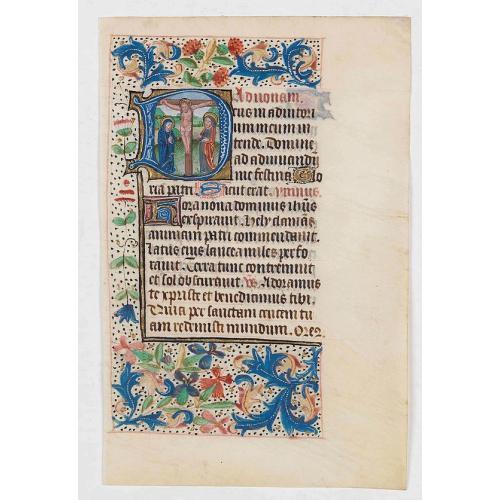 Ad nonam.
Deus in adiutori
um meum in
tende. Domine
ad adiuvandu
me festina. Glo
ria patri. Sicut erat. Ymnus.
Hora nona dominus ihus
expiravit. Hely clamans
animam patri commendavit.
Latus eius lancea miles perfo
ravit. Terra tunc contremuit
et sol obscuravit. vs. Adoramus
te xpriste et benedicimus tibi.
Quia per sanctam crucem tu
am redemisti mundum. Oreo.